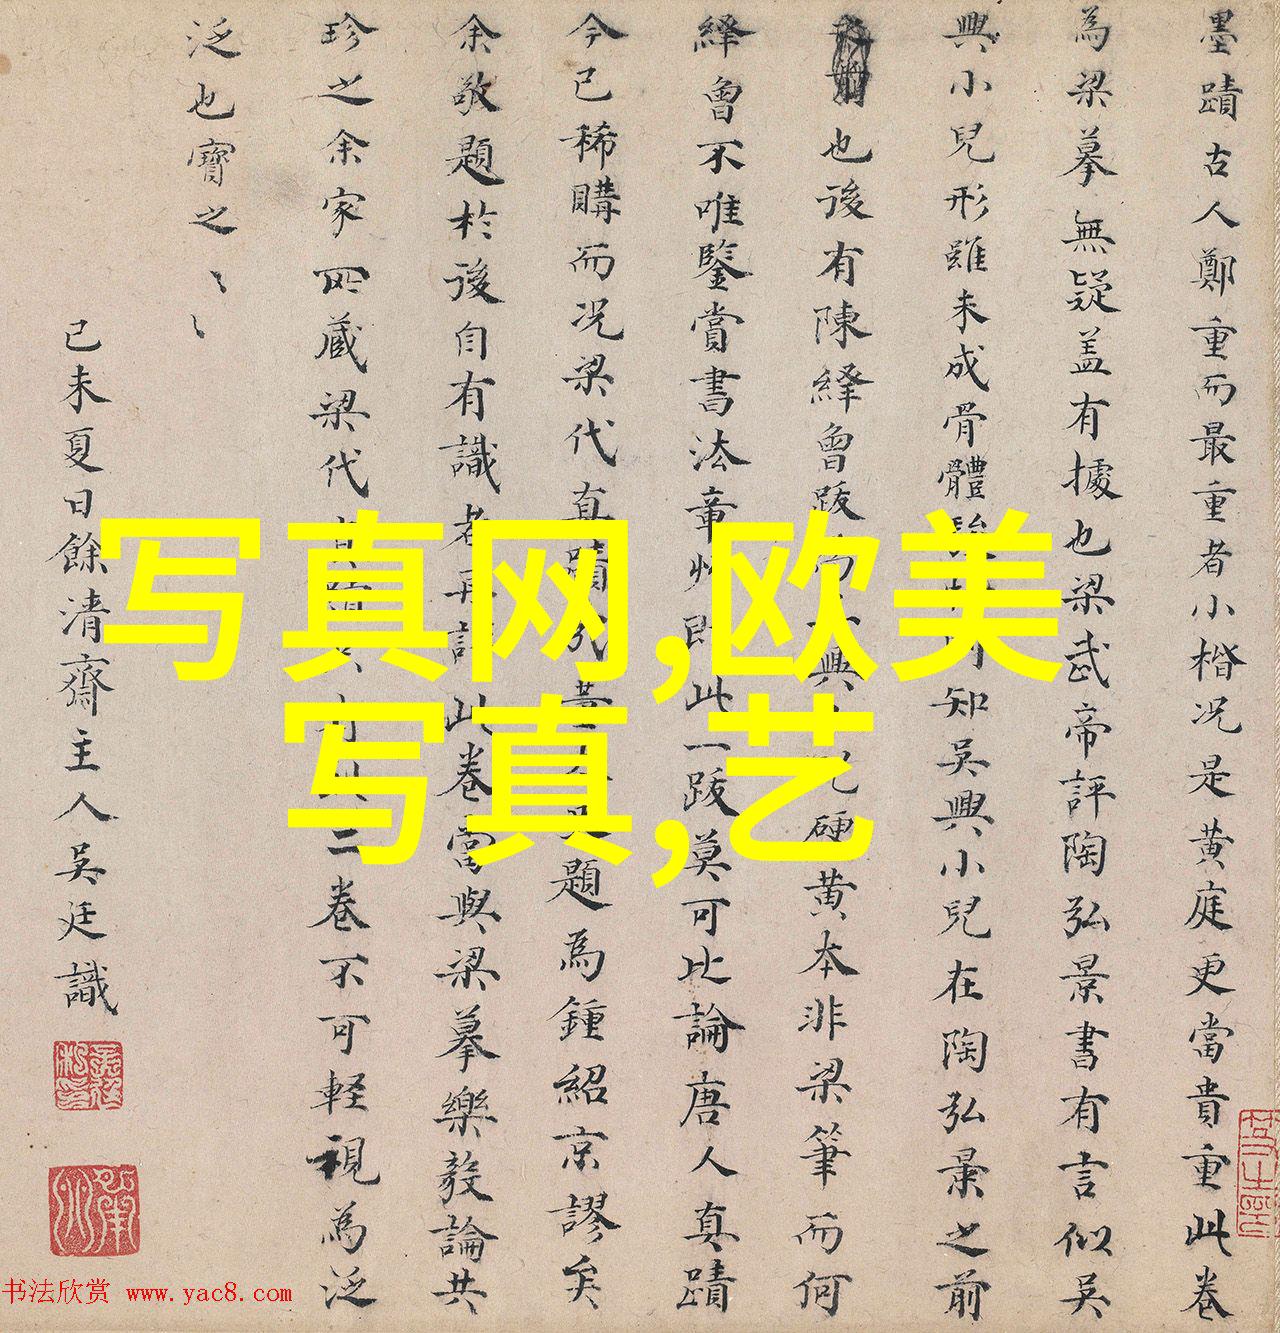 墨蹟古人鄭重而最重者小楷况是黄庭更當貴重此卷
為梁摹無疑盖有據也梁武帝評陶弘景書有言似吴
興小兒形雖未成骨體知吴興小兒在陶弘景之前
也後有陳繹曾跋興硬黄本非梁筆而何
繹曾不唯鑒賞書法章即此一跋莫可比論唐人真蹟
今已稀購而况梁代真蹟題為鍾紹京謬矣
余敬題於後自有識者再此卷當與梁摹樂毅論共
珍之余家所藏梁代二卷不可軽視為泛
泛也寳之〻〻
己未夏日餘清齋主人吴廷識
写真网,欧美
写真,艺
书法欣赏 www.yac8.com